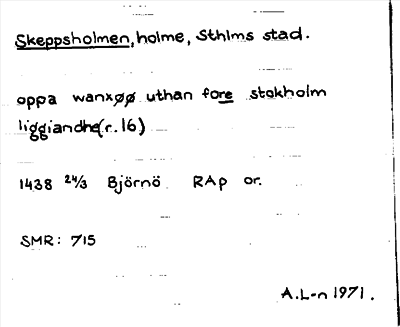 Skeppsholmen, holme, Sthlms stad.
oppa wanxøø uthan fore stokholm
liggiandhe (r. 16)
1438 24/3 Björnö RAp or.
SMR: 715
A.L-n 1971.